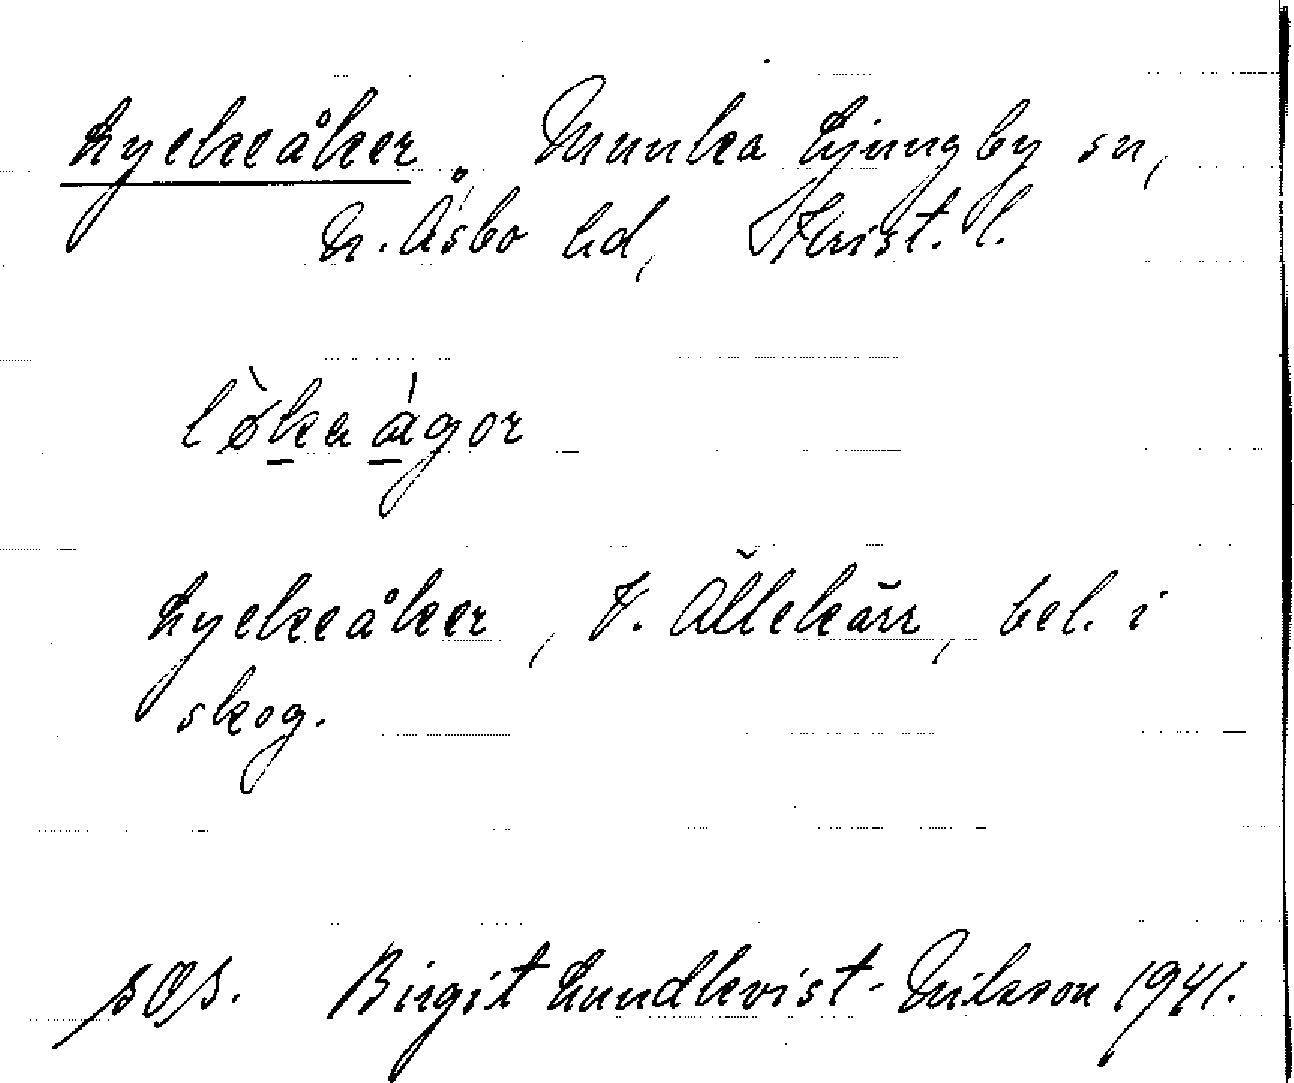 Lyckeåker. Munka Ljungby sn,
N. Åsbo hd, Krist. l.
lø̀ka ágor
Lyckeåker, t. Ällekärr, bel. i
skog.
Birgit Lundkvist-Nilsson 1941.